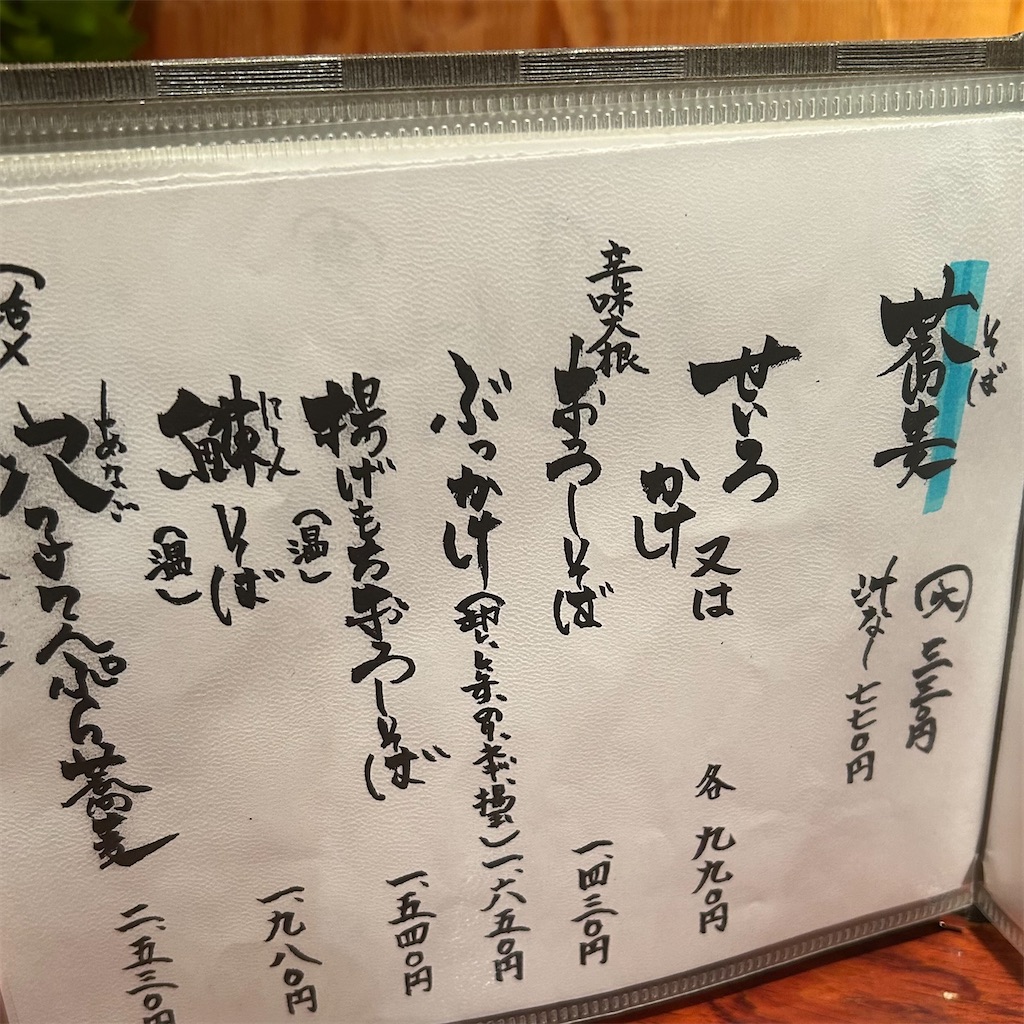 そば
蕎麦
大 三三〇円
汁なし 七七〇円
せいろ 又は
かけ
各 九九〇円
辛味大根
おろしそば 一、四三〇円
ぶっかけ 一、六五〇円
揚げもちおろしそば 一、五四〇円
(温)
にしん
鰊そば 一、九八〇円
(温)
あなご
穴子てんぷら蕎麦 二、五三〇円
(活〆